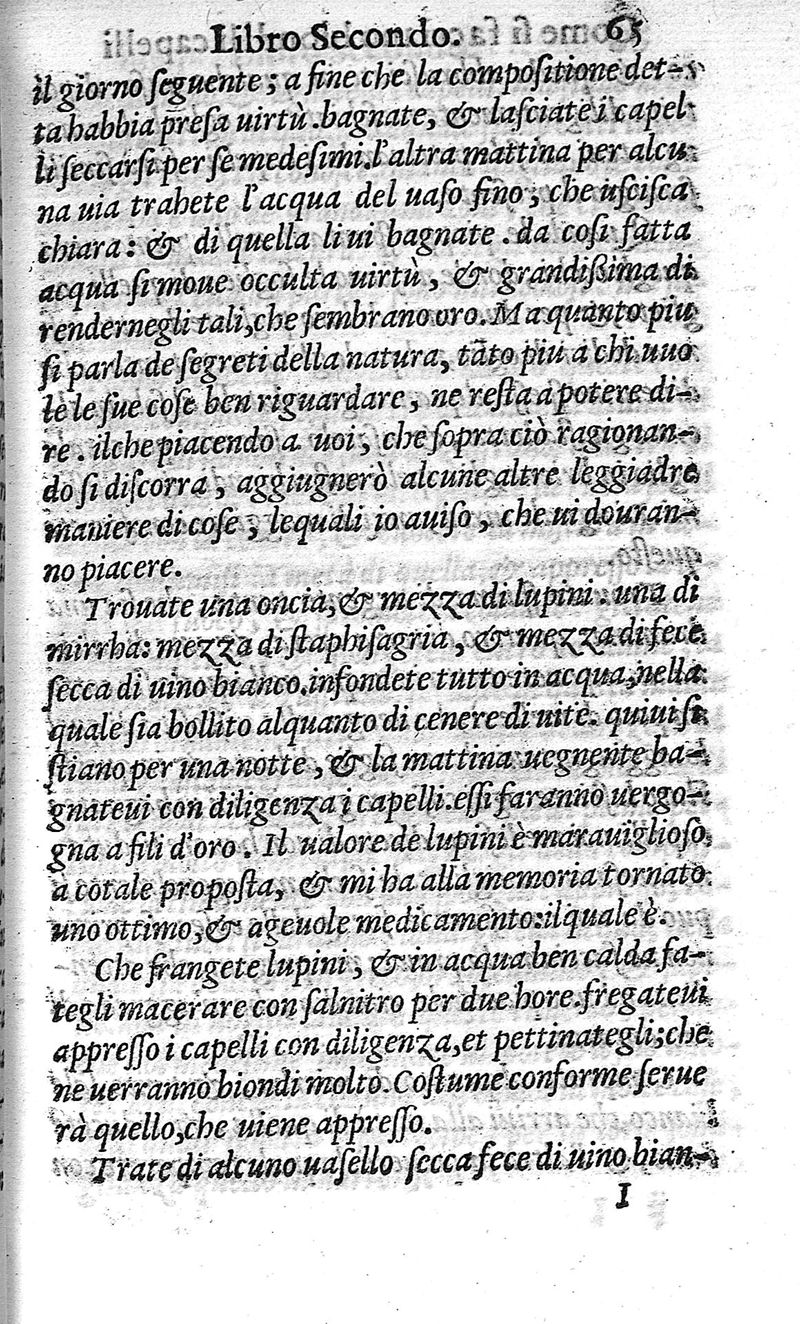 Libro Secondo. 65
il giorno ſeguente; a fine che la compoſitione det-
ta habbia preſa uirtù. bagnate, & laſciate i capel
li ſeccarſi per ſe medeſimi. l'altra mattina per alcu
na uia trahete l'acqua del uaſo fino, che uſciſca
chiara: & di quella li ui bagnate. da coſi fatta
acqua ſi moue occulta uirtù, & grandiſſima di
rendernegli tali, che ſembrano oro. Ma quanto piu
ſi parla de ſegreti della natura, tāto piu a chi uuo
le le ſue coſe ben riguardare, ne reſta a potere di-
re. ilche piacendo a uoi, che ſopra ciò ragionan-
do ſi diſcorra, aggiugnerò alcune altre leggiadre
maniere di coſe, lequali io auiſo, che ui douran-
no piacere.
Trouate una oncia, & mezza di lupini. una di
mirrha: mezza di ſtaphiſagria, & mezza di fece
ſecca di uino bianco. infondete tutto in acqua, nella
quale ſia bollito alquanto di cenere di uite. quiui ſi
ſtiano per una notte, & la mattina uegnente ba-
gnateui con diligenza i capelli. eſſi faranno uergo-
gna a fili d'oro. Il ualore de lupini è marauiglioſo
a cotale propoſta, & mi ha alla memoria tornato
uno ottimo, & ageuole medicamento: ilquale è.
Che frangete lupini, & in acqua ben calda fa-
tegli macerare con ſalnitro per due hore. fregateui
appreſſo i capelli con diligenza, et pettinategli; che
ne uerranno biondi molto. Coſtume conforme ſerue
rà quello, che uiene appreſſo.
Trate di alcuno uaſello ſecca fece di uino bian-
I